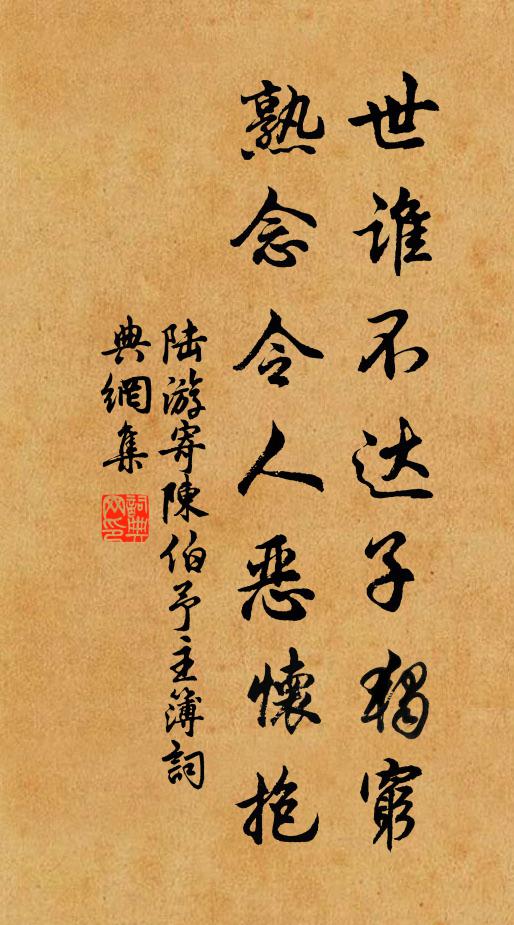 世谁不达子独窮
熟念令人恶懷抱
陆游寄陳伯予主簿詞
典網集
詞典网印